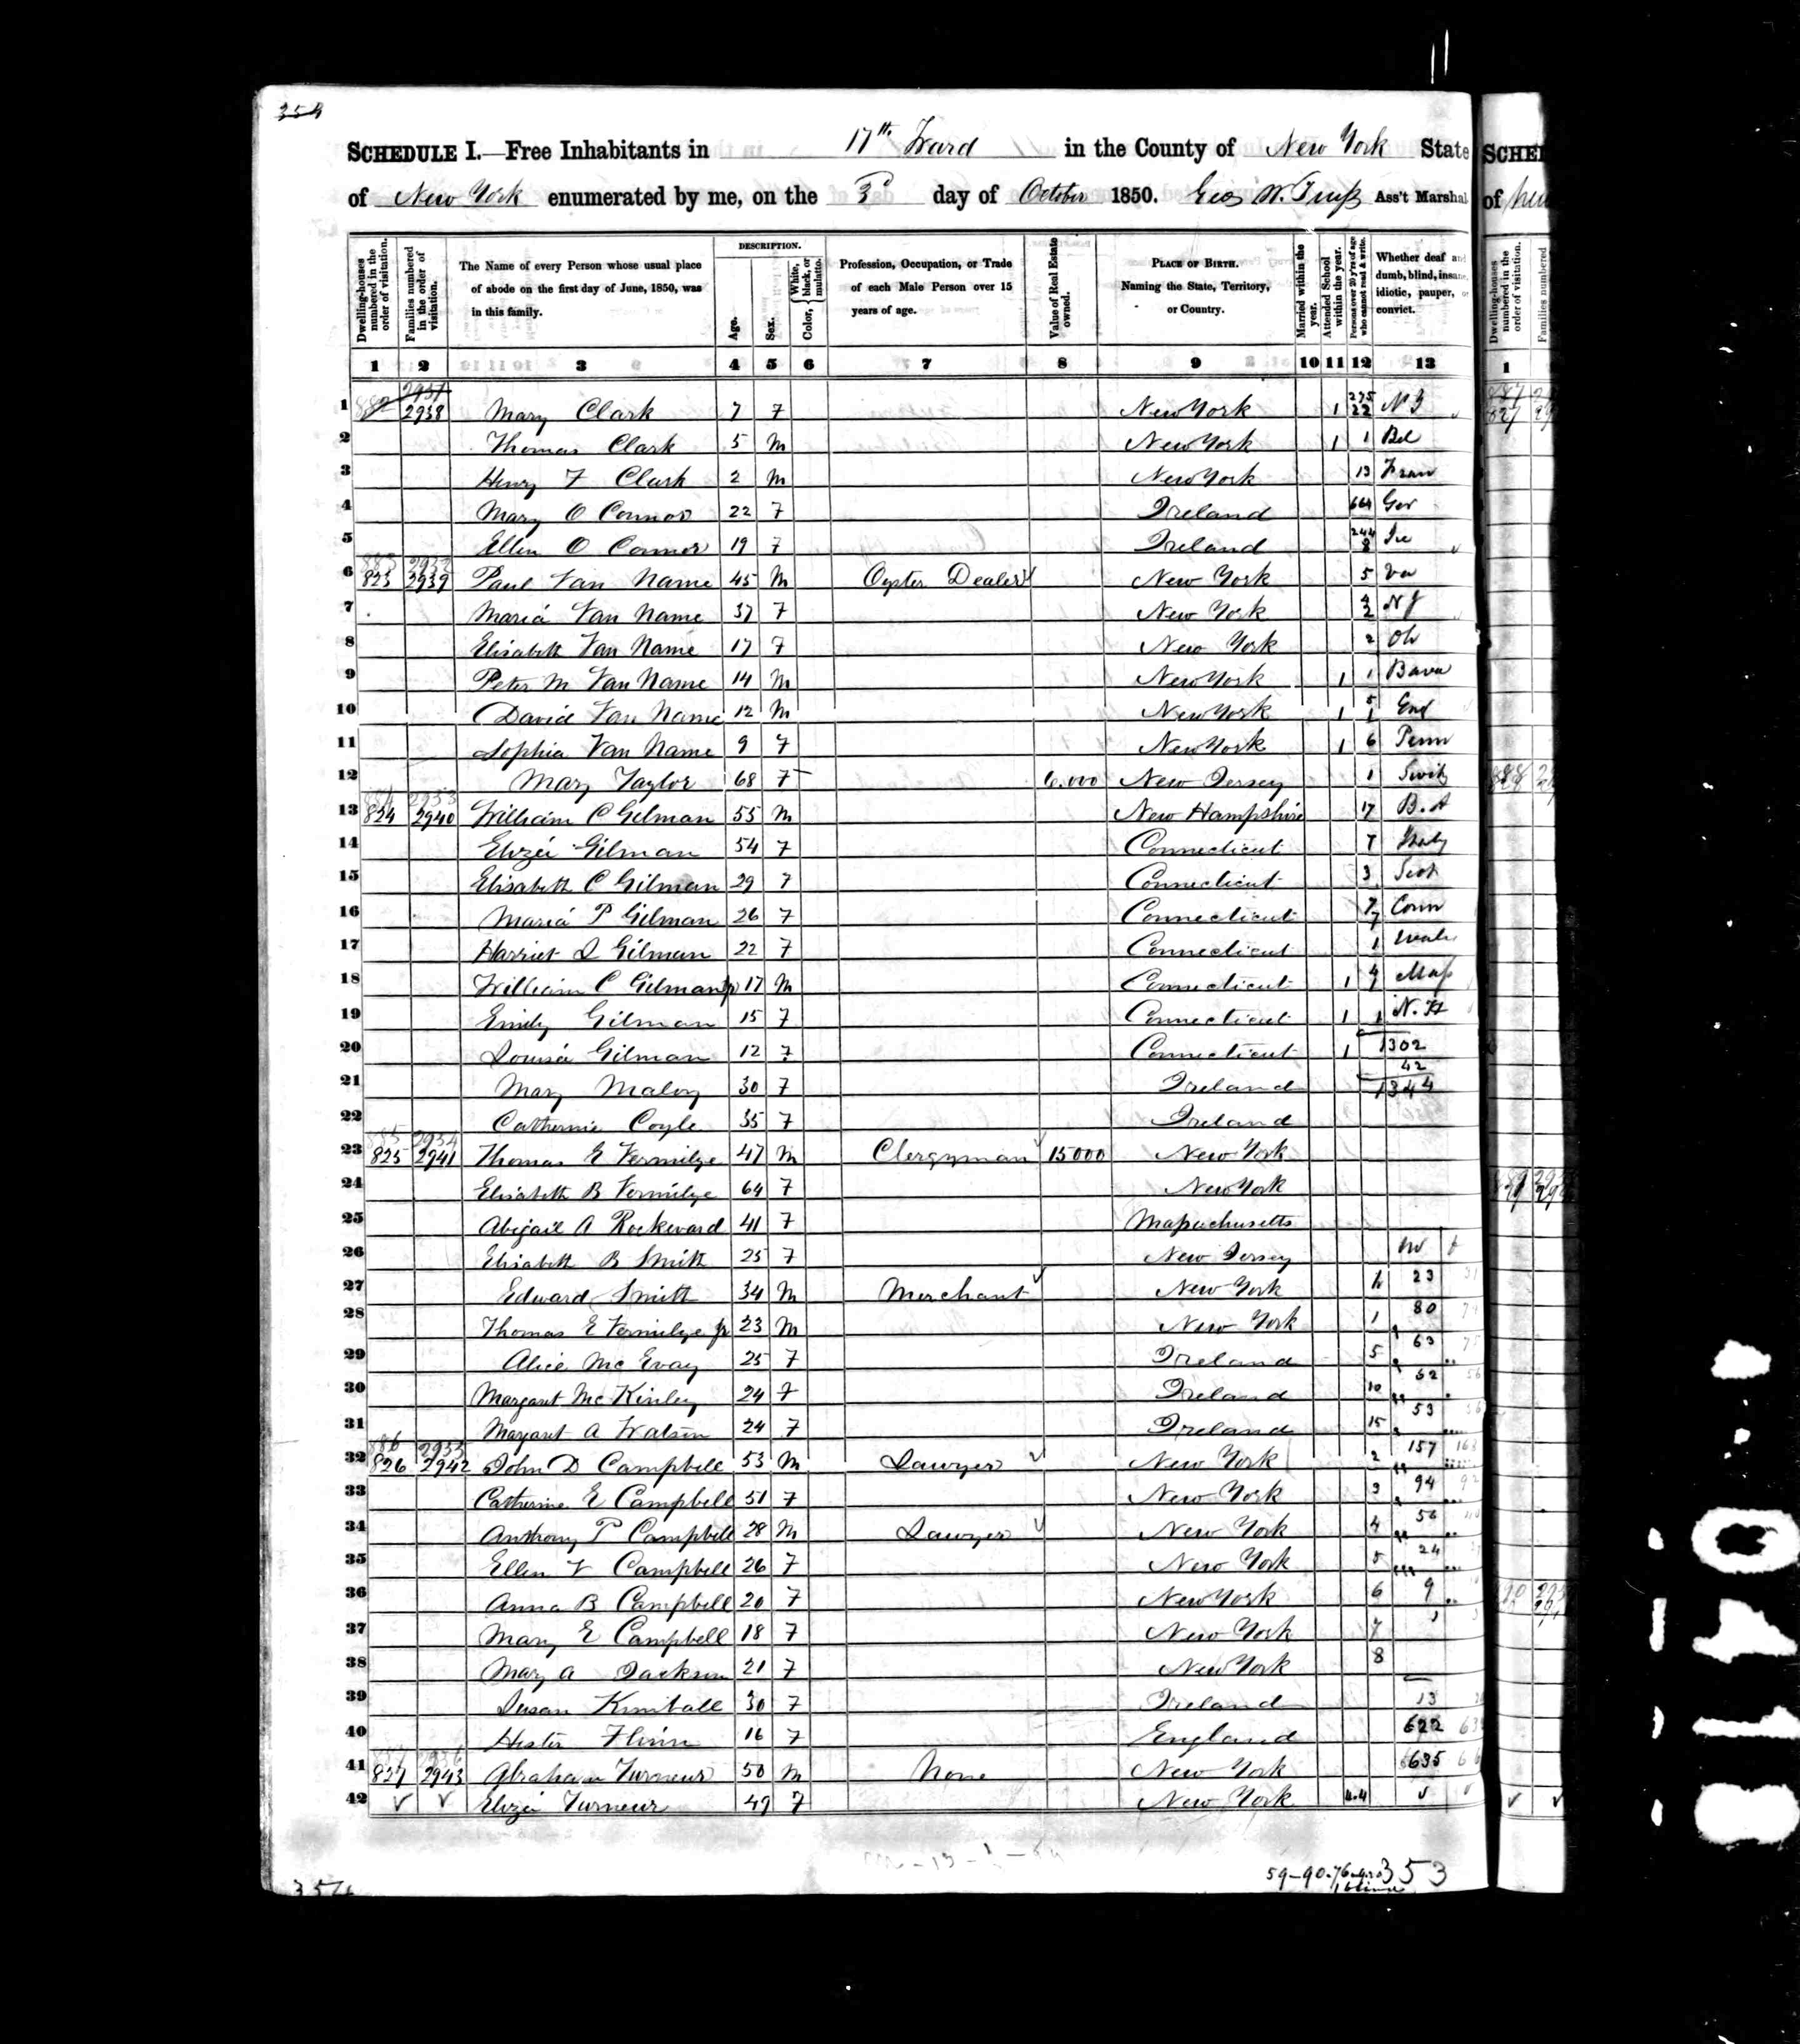 354
SCHEDULE I.—Free Inhabitants in 17th Ward in the County of New York State
of New York enumerated by me, on the 3d day of October 1850. Ass't Marshal
Dwelling-houses numbered in the order of visitation.
Families numbered in the order of visitation.
The Name of every Person whose usual place of abode on the first day of June, 1850, was in this family.
DESCRIPTION.
Age.
Sex.
Color, { White, black, or mulatto.
Profession, Occupation, or Trade of each Male Person over 15 years of age.
Value of Real Estate owned.
PLACE OF BIRTH. Naming the State, Territory, or Country.
Married within the year.
Attended School within the year.
Persons over 20 y'rs of age who cannot read & write.
Whether deaf and dumb, blind, insane, idiotic, pauper, or convict.
1 2 3 4 5 6 7 8 9 10 11 12 13
1 2938 Mary Clark 7 F New York 1 N Y
2 Thomas Clark 5 M New York 1 1 Bel
3 Henry F Clark 2 M New York 13 Fran
4 Mary O Connor 22 F Ireland 664 Ger
5 Ellen O Connor 19 F Ireland 244 Ire
6 823 2939 Paul Van Name 45 M Oyster Dealer New York 5 Va
7 Maria Van Name 37 F New York N J
8 Elisabeth Van Name 17 F New York 2 Oh
9 Peter M Van Name 14 M New York 1 1 Bava
10 David Van Name 12 M New York 1 Eng
11 Sophia Van Name 9 F New York 1 6 Penn
12 Mary Taylor 68 F 6.000 New Jersey 1 Switz
13 824 2940 William C Gilman 55 M New Hampshire 17 B. A
14 Eliza Gilman 54 F Connecticut 7 Italy
15 Elisabeth C Gilman 29 F Connecticut 3 Scot
16 Maria P Gilman 26 F Connecticut Conn
17 Harriet I Gilman 22 F Connecticut 1 Wale
18 William C Gilman jr 17 M Connecticut 1 Mass
19 Emily Gilman 15 F Connecticut 1 1 N. H
20 Louisa Gilman 12 F Connecticut 1 1302
42
21 Mary Maloy 30 F Ireland 1344
22 Catherine Coyle 35 F Ireland
23 825 2941 Thomas E Vermilye 47 M Clergyman 15000 New York
24 Elisabeth B Vermilye 64 F New York
25 Abigail A Rockward 41 F Massachusetts
26 Elisabeth B Smith 25 F New Jersey
27 Edward Smith 34 M Merchant New York 23
28 Thomas E Vermilye jr 23 M New York 1 80
29 Alice Mc Evay 25 F Ireland 5 63
30 Margaret McKinley 24 F Ireland 10 52
31 Margaret A Watson 24 F Ireland 15 53
32 826 2942 John D Campbell 53 M Lawyer New York 2 157
33 Catherine E Campbell 51 F New York 3 94
34 Anthony P Campbell 28 M Lawyer New York 4 56
35 Ellen V Campbell 26 F New York 5 24
36 Anna B Campbell 20 F New York 6 9
37 Mary E Campbell 18 F New York 7
38 Mary A Jackson 21 F New York 8
39 Susan Kimball 30 F Ireland 13
40 Hester Flinn 16 F England 622
41 827 2943 Abraham Turneur 50 M None New York 635
42 Eliza Turneur 49 F New York
353